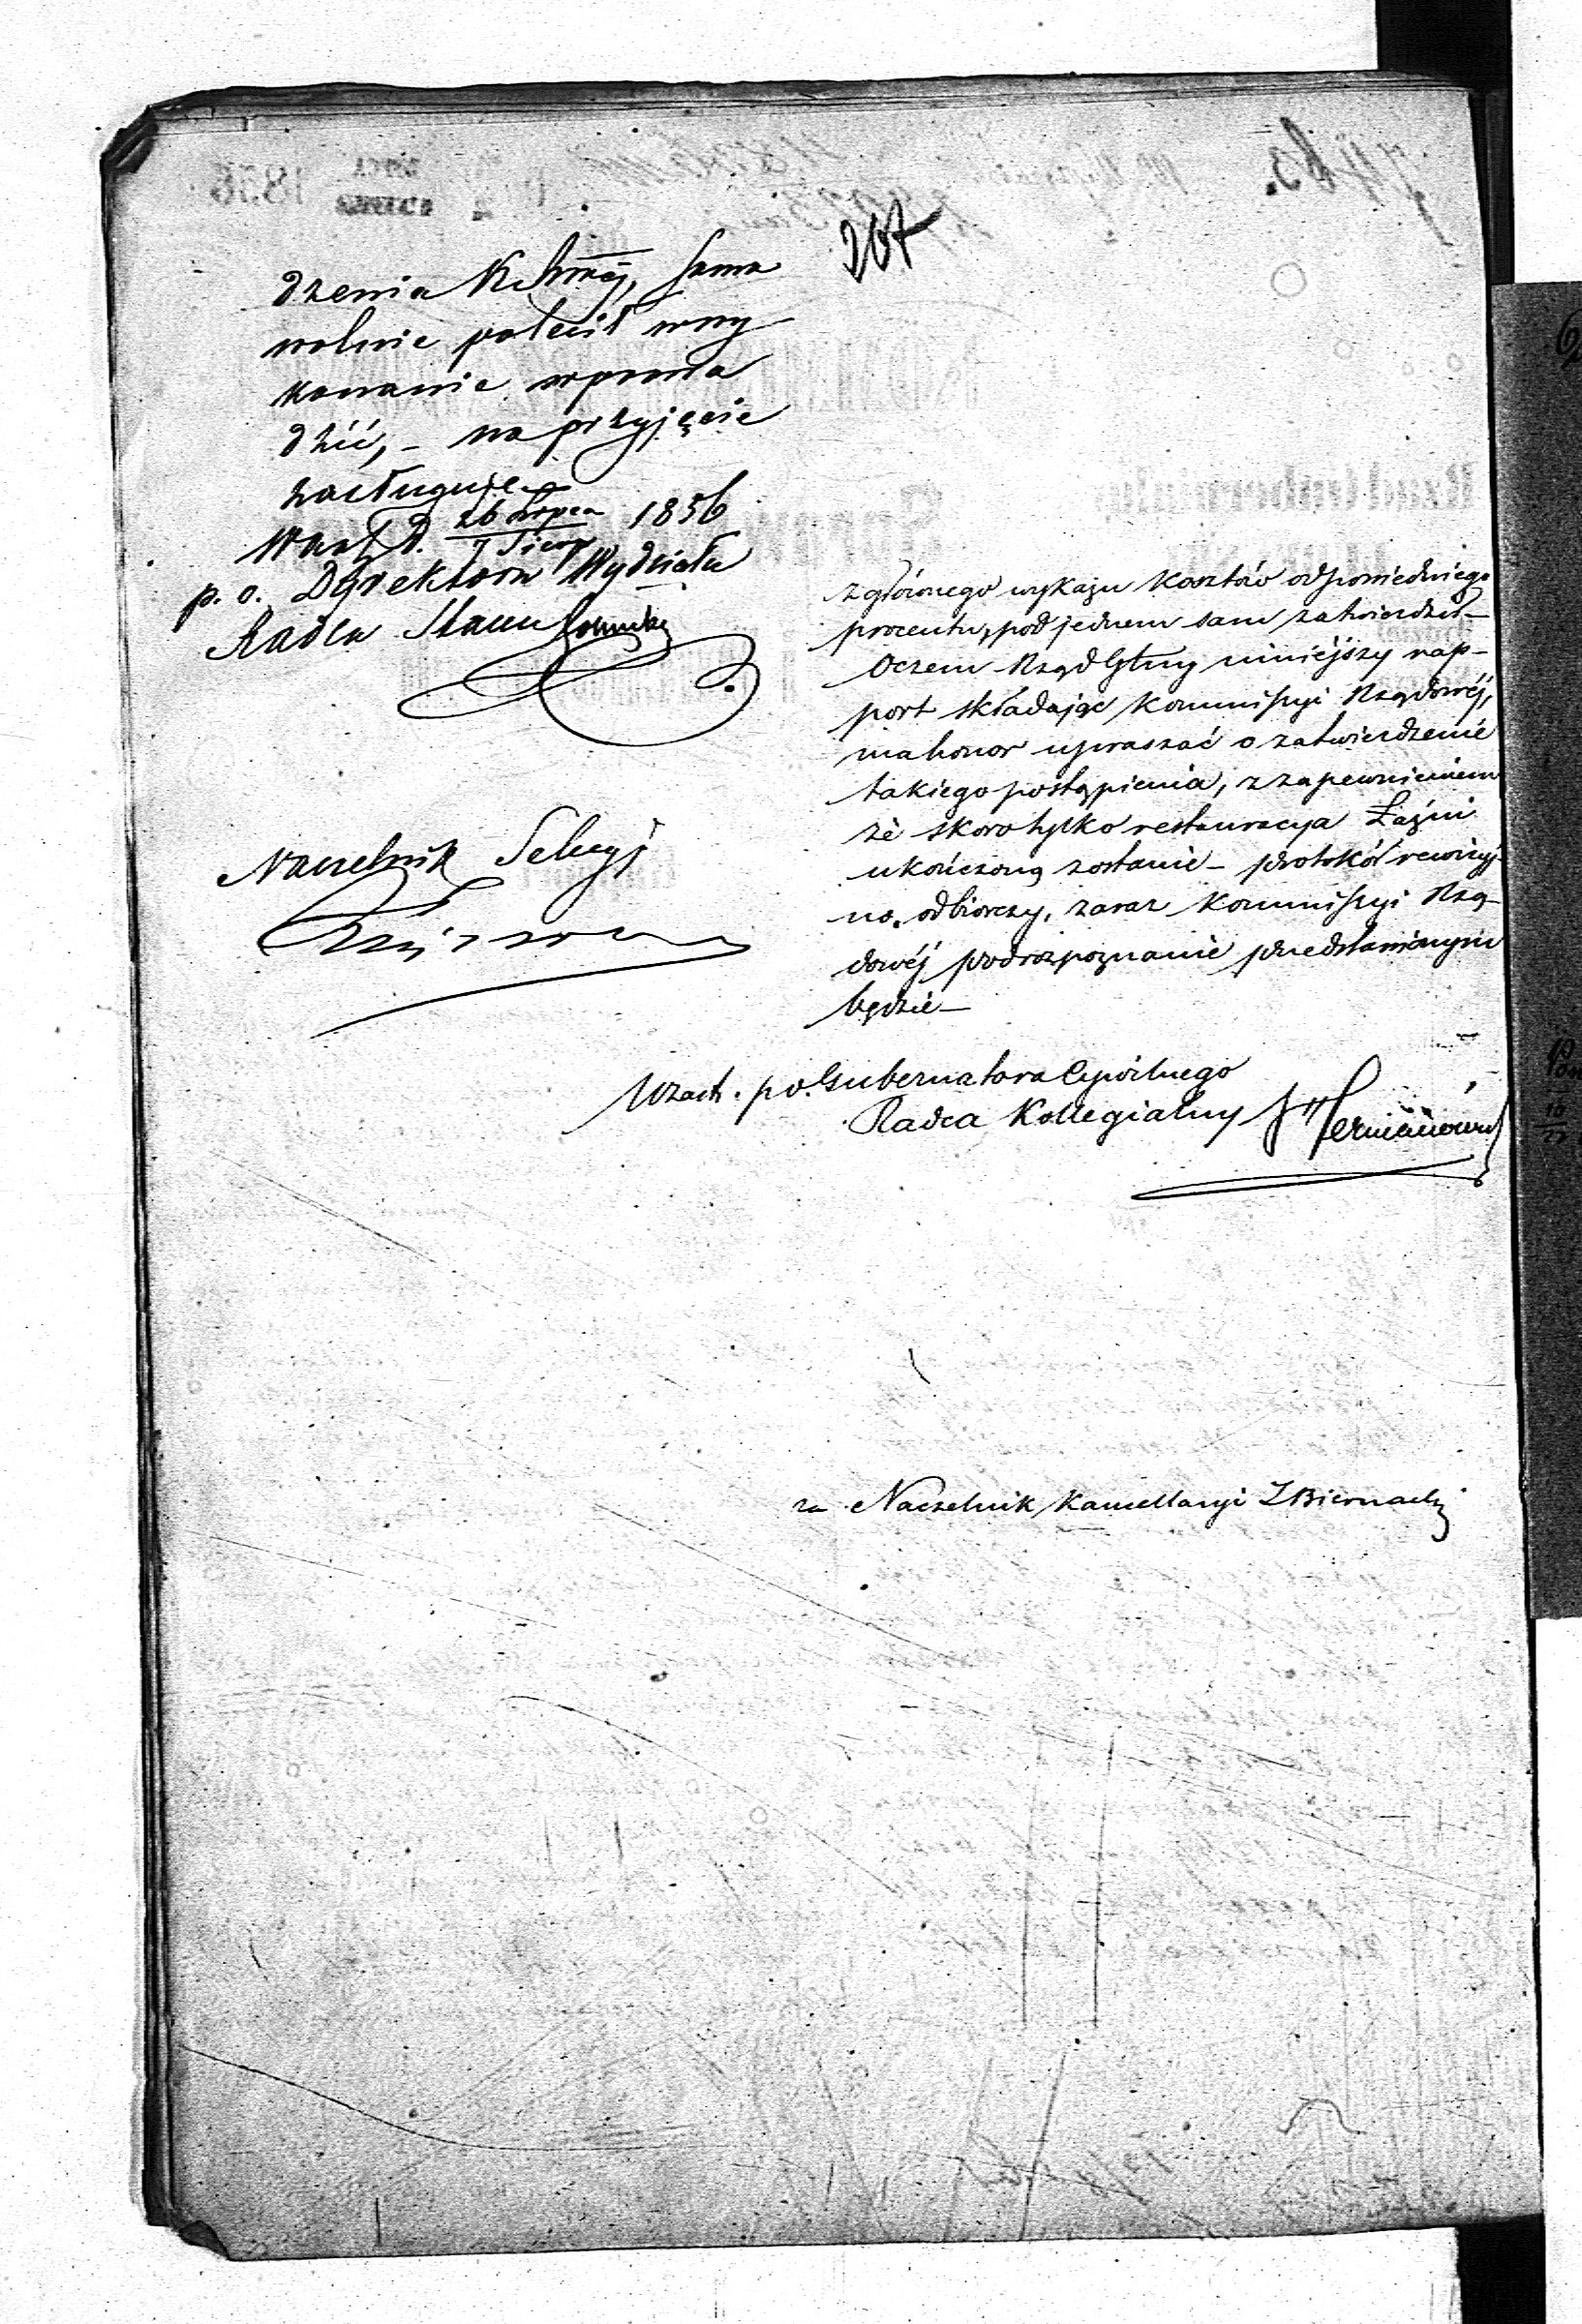 267
dzenia K. Rządowej, samo
wolnie polecił wwy
konanie wprowa
dzić, – na przyjęcie
zasługuje
Warsz. d. 26 Lipca / 7 Sierp 1856
p. o. Dyrektora Wydziału
Radca Stanu
Naczelnik Sekcyi
zgłównego wykazu kosztów odpowiedniego
procentu, pod jednem sam zatwierdził –
Oczem Rząd Gbny niniejszy rap–
port składając Kommissyi Rządowéj,
ma honor upraszać o zatwierdzenie
takiego postąpienia, z zapewnieniem
że skoro tylko restauracya Łaźni
ukończoną zostanie – protokół rewizyj–
no. odbiorczy, zaraz Kommissyi Rzą–
dowéj pod rozpoznanie przedstawionym
będzie –
W zast. p.o. Gubernatora Cywilnego
Radca Kollegialny
za Naczelnik Kancellaryi Z Biernacki